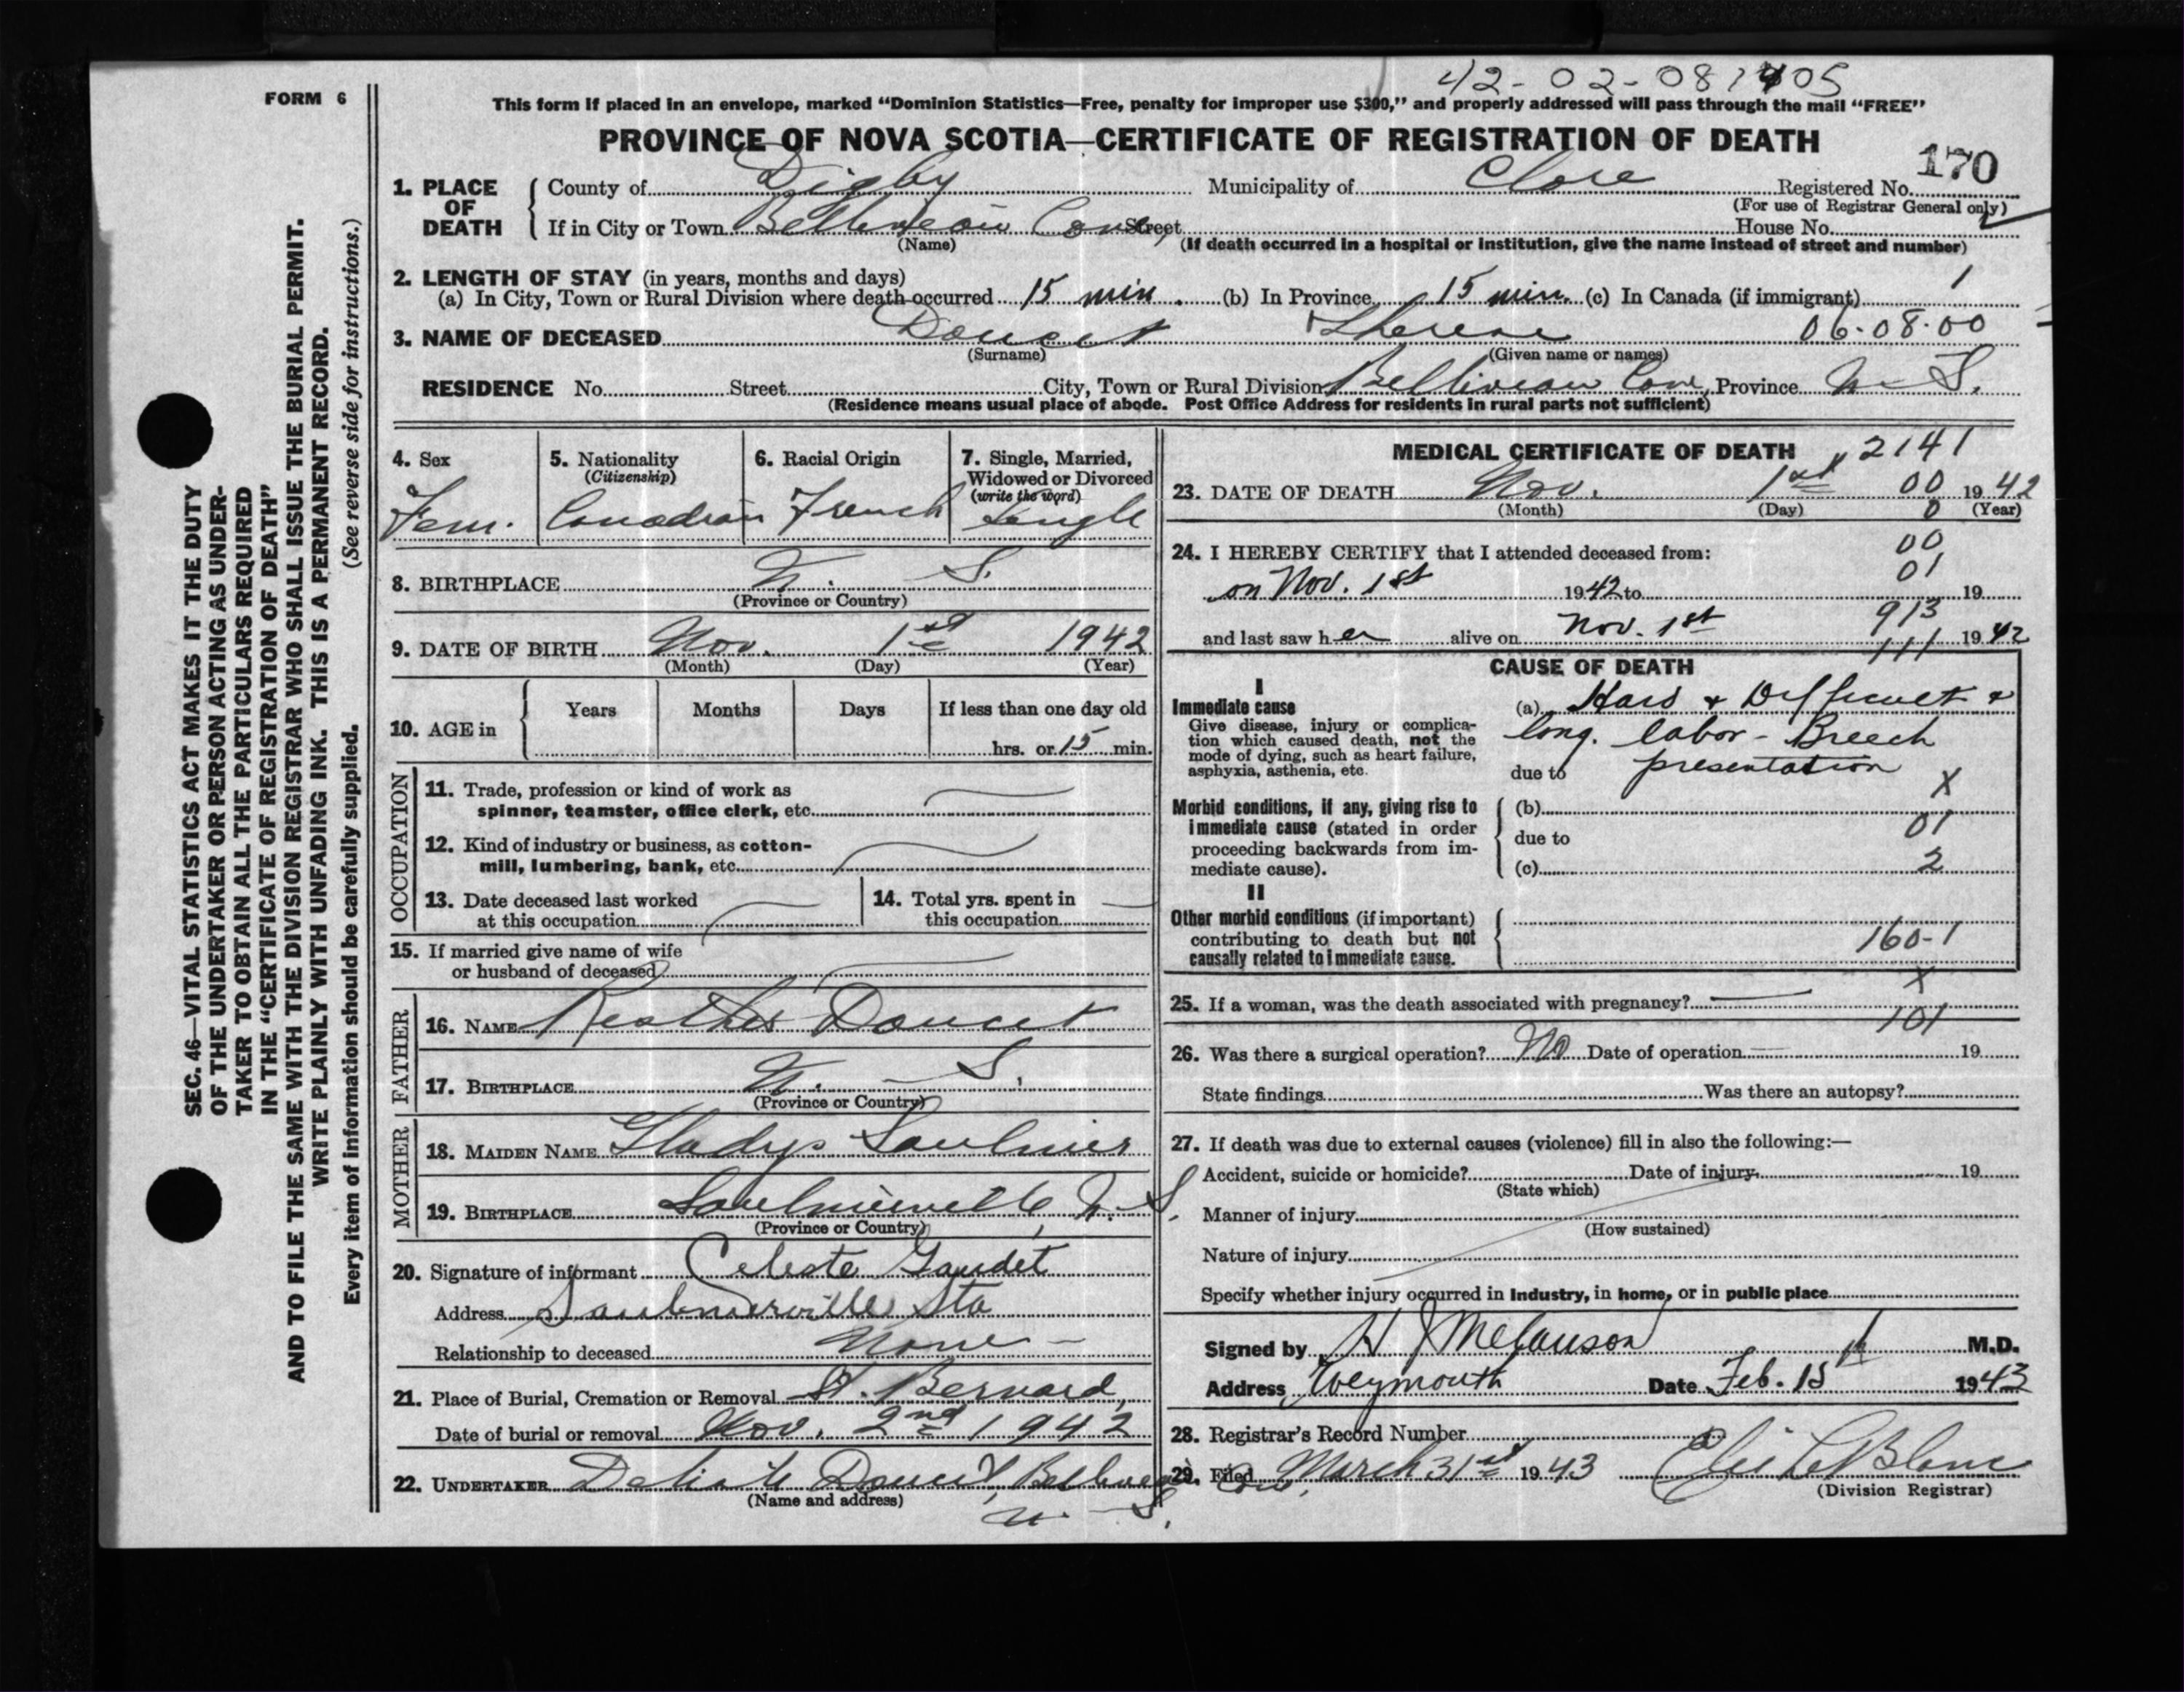 42-02-081405
FORM 6
This form if placed in an envelope, marked “Dominion Statistics—Free, penalty for improper use $300,” and properly addressed will pass through the mail “FREE”
PROVINCE OF NOVA SCOTIA—CERTIFICATE OF REGISTRATION OF DEATH
170
1. PLACE OF DEATH County of Digby Municipality of Clare Registered No.
(For use of Registrar General only)
If in City or Town Belliveau Cove, Street House No.
(Name) (If death occurred in a hospital or institution, give the name instead of street and number)
2. LENGTH OF STAY (in years, months and days) 1
(a) In City, Town or Rural Division where death occurred 15 min. (b) In Province 15 min. (c) In Canada (if immigrant)
3. NAME OF DECEASED Doucet 06-08-00
(Surname) (Given name or names)
RESIDENCE No. Street City, Town or Rural Division Belliveau Cove, Province N. S.
(Residence means usual place of abode. Post Office Address for residents in rural parts not sufficient)
4. Sex 5. Nationality (Citizenship) 6. Racial Origin 7. Single, Married, Widowed or Divorced (write the word)
Fem. Canadian French Single
8. BIRTHPLACE N. S.
(Province or Country)
9. DATE OF BIRTH Nov. 1st 1942
(Month) (Day) (Year)
10. AGE in Years Months Days If less than one day old
hrs. or 15 min.
OCCUPATION
11. Trade, profession or kind of work as
spinner, teamster, office clerk, etc.
12. Kind of industry or business, as cotton-
mill, lumbering, bank, etc.
13. Date deceased last worked at this occupation 14. Total yrs. spent in this occupation
15. If married give name of wife
or husband of deceased
FATHER
16. NAME Doucet
17. BIRTHPLACE N. S.
(Province or Country)
MOTHER
18. MAIDEN NAME Gladys Saulnier
19. BIRTHPLACE Saulnierville, N. S.
(Province or Country)
20. Signature of informant Celeste Gaudet
Address Saulnierville Sta
Relationship to deceased None
21. Place of Burial, Cremation or Removal St. Bernard,
Date of burial or removal Nov. 2nd 1942
22. UNDERTAKER Doucet, Belliveau Cove,
(Name and address)
N. S.
MEDICAL CERTIFICATE OF DEATH 2141
23. DATE OF DEATH Nov. 1st 00 1942
(Month) (Day) 0 (Year)
24. I HEREBY CERTIFY that I attended deceased from: 00
01
on Nov. 1st 1942 to 19
913
and last saw her alive on Nov. 1st 1942
111
CAUSE OF DEATH
I
Immediate cause (a) Hard + Difficult +
Give disease, injury or complica-
tion which caused death, not the
mode of dying, such as heart failure,
asphyxia, asthenia, etc.
long. labor - Breech
due to presentation
X
Morbid conditions, if any, giving rise to
immediate cause (stated in order
proceeding backwards from im-
mediate cause).
(b)
due to 01
(c) 2
II
Other morbid conditions (if important)
contributing to death but not
causally related to immediate cause.
160-1
X
25. If a woman, was the death associated with pregnancy?
101
26. Was there a surgical operation? No Date of operation 19
State findings Was there an autopsy?
27. If death was due to external causes (violence) fill in also the following:—
Accident, suicide or homicide? Date of injury 19
(State which)
Manner of injury
(How sustained)
Nature of injury
Specify whether injury occurred in Industry, in home, or in public place
Signed by H J M.D.
Address Weymouth Date Feb. 15 1943
28. Registrar's Record Number
29. Filed March 31st 1943 LeBlanc
(Division Registrar)
SEC. 46—VITAL STATISTICS ACT MAKES IT THE DUTY
OF THE UNDERTAKER OR PERSON ACTING AS UNDER-
TAKER TO OBTAIN ALL THE PARTICULARS REQUIRED
IN THE “CERTIFICATE OF REGISTRATION OF DEATH”
AND TO FILE THE SAME WITH THE DIVISION REGISTRAR WHO SHALL ISSUE THE BURIAL PERMIT.
WRITE PLAINLY WITH UNFADING INK. THIS IS A PERMANENT RECORD.
Every item of information should be carefully supplied. (See reverse side for instructions.)